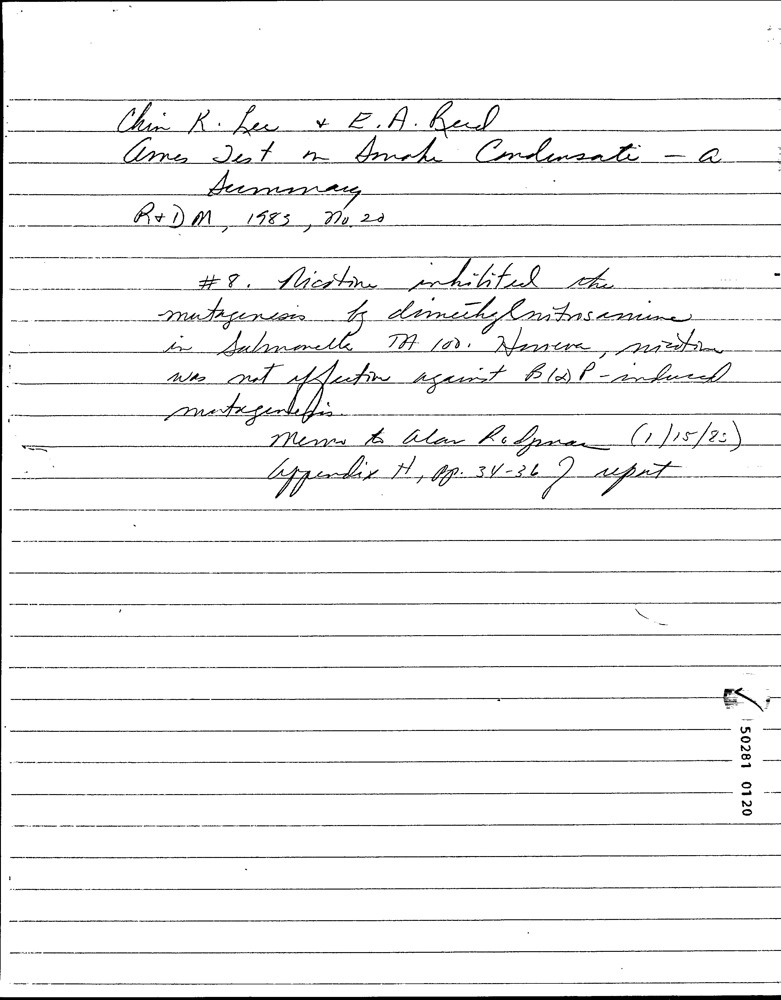 Chin K. Lee + E.A. Reed
Ames Test on Smoke Condensate - a
Summary
R+DM, 1983, No. 20
#8. Nicotine inhibited the
mutagenesis by dimethylnitrosamine
in Salmonella TA 100. However, nicotine
was not effective against B(a)P-induced
mutagenesis.
Memo to Alan Rodgman (1/15/83)
Appendix H, pp. 34-36 of report
50281 0120